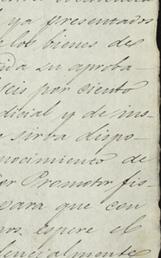 ya presentados
los bienes de
ida su aproba
seis por ciento
dicial y de ins
se sirba dispo
nocimiento de
or Promotor fis
para que con
ros. espere el
dencialmente